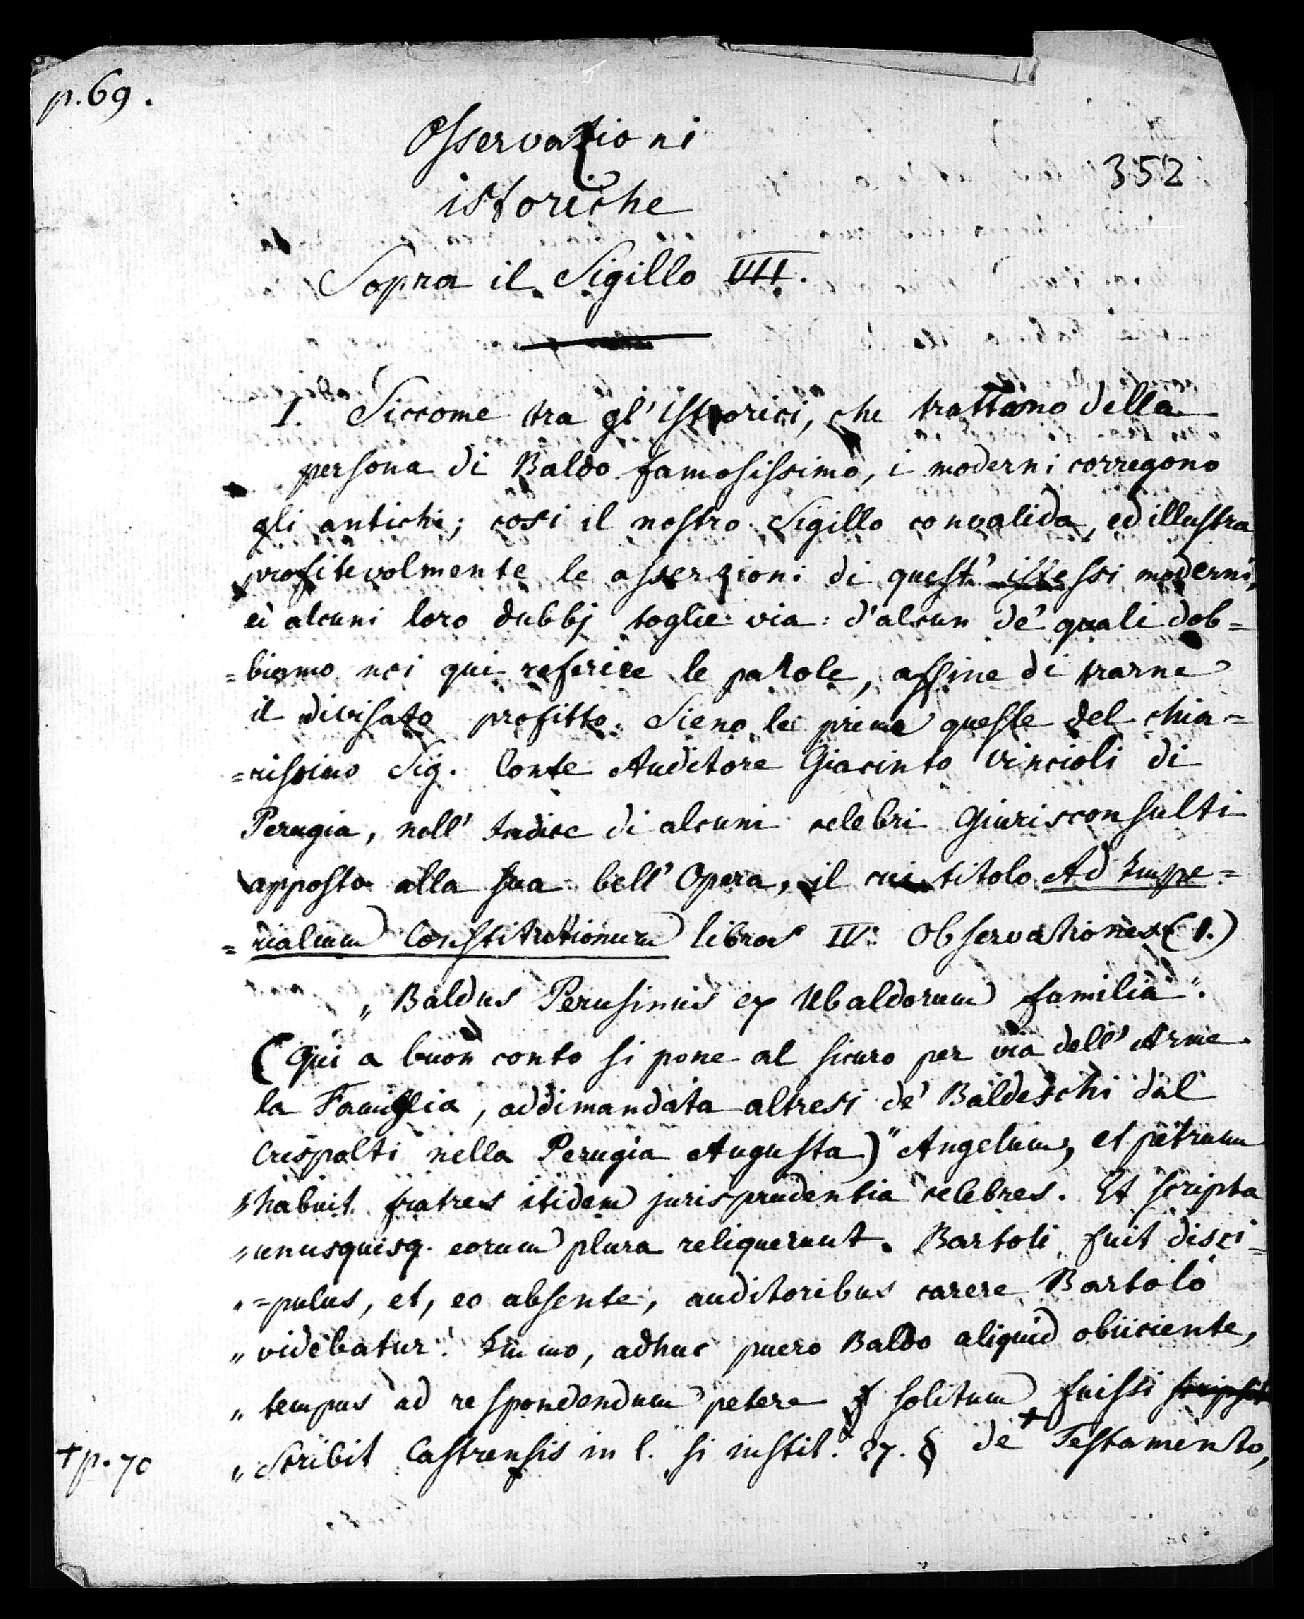 p. 69.
Osservazioni
352
istoriche
Sopra il Sigillo VII.
I. Siccome tra gl' istorici, che trattano della
persona di Baldo famosissimo, i moderni corregono
gli antichi; così il nostro Sigillo convalida, ed illustra
profitevolmente le asserzioni di quest' istessi moderni,
ei alcuni loro dubbj toglie via: d'alcun de' quali dob=
=biamo noi qui referire le parole, affine di trarne
il divisato profitto. Sieno le prime queste del chia=
=rissimo Sig. Conte Auditore Giacinto Vincioli di
Perugia, nell' Indice di alcuni celebri Giurisconsulti
apposto alla sua bell' Opera, il cui titolo Ad Impe=
=rialium Constitutionum libros IV: Observationes (1.)
„ Baldus Perusinus ex Ubaldorum familia".
(Qui a buon conto si pone al sicuro per via dell' Arme
la Famiglia, addimandata altresi de' Baldeschi dal
Crispolti nella Perugia Augusta) " Angelum, et petrum
„ habuit fratres itidem jurisprudentia celebres. Et scripta
„ unusquisq. eorum plura reliquerunt. Bartoli fuit disci=
„ =pulus, et, eo absente, auditoribus carere Bartolo
„ videbatur. Immo, adhuc puero Baldo aliquid obiiciente,
„ tempus ad respondendum petere solitum fuissi
+ p. 70 „ Scribit Castrensis in l. si instit. 27. § de + Testamento,